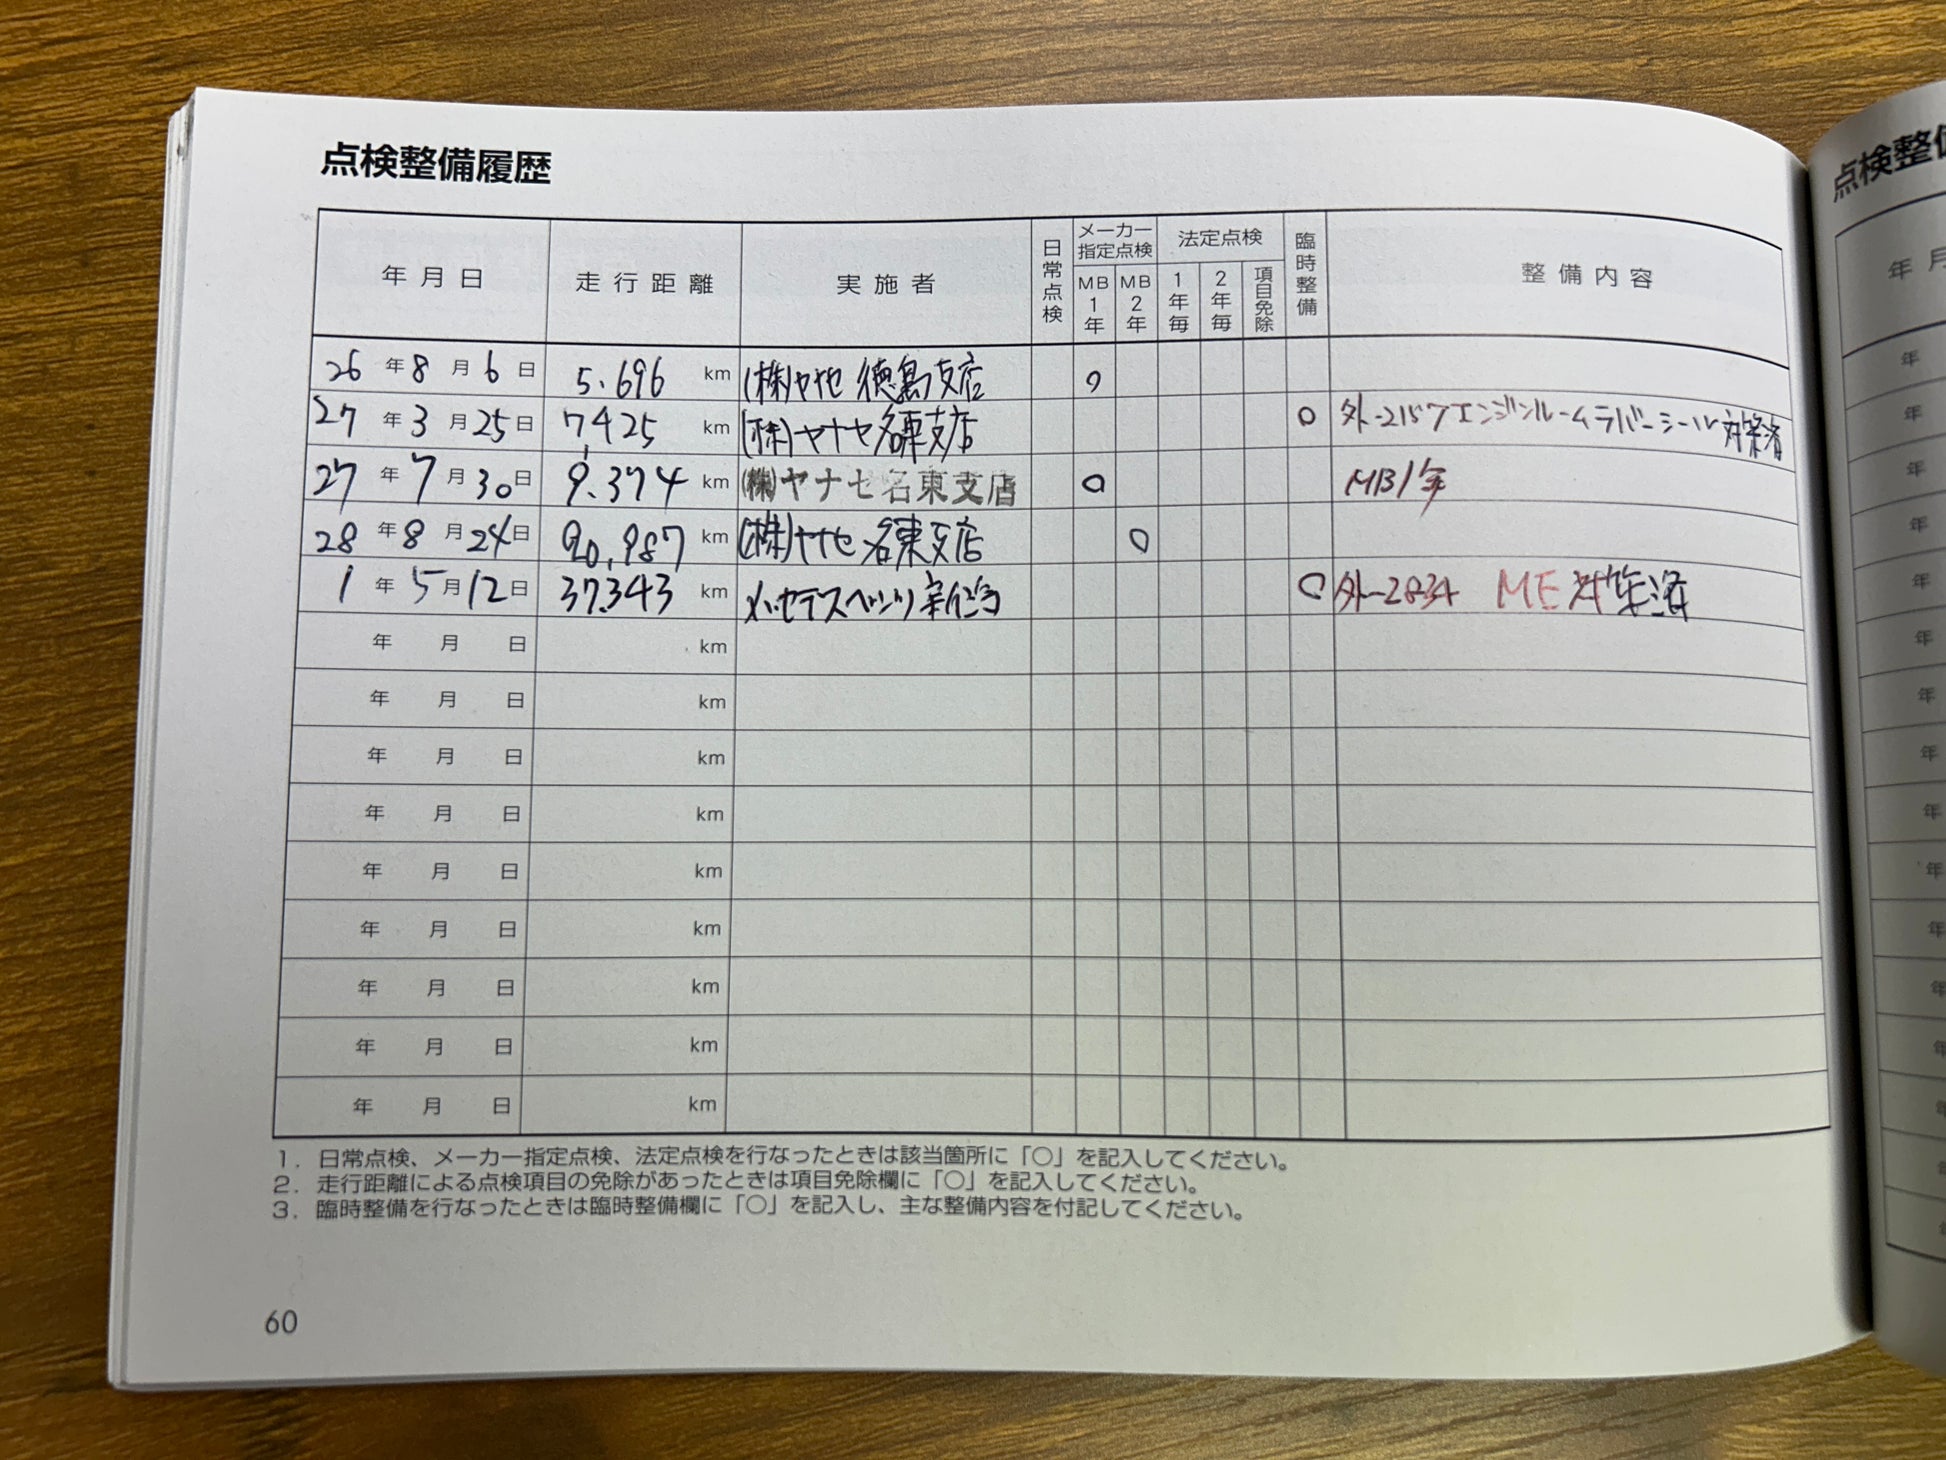 点検整備履歴
年月日 走行距離 実施者 日常点検 メーカー指定点検 MB1年 MB2年 法定点検 1年毎 2年毎 項目免除 臨時整備 整備内容
26年8月6日 5.696 km (株)ヤナセ 徳島支店 ○
27年3月25日 7425 km (株)ヤナセ名東支店 ○ 外-2157エンジンルームラバーシール対策済
27年7月30日 9.374 km (株)ヤナセ名東支店 ○ MB1年
28年8月24日 km (株)ヤナセ 名東支店 ○
1年5月12日 37.343 km メルセデスベンツ ○ 外-2834 ME 対策済
年 月 日 km
年 月 日 km
年 月 日 km
年 月 日 km
年 月 日 km
年 月 日 km
年 月 日 km
年 月 日 km
年 月 日 km
1. 日常点検、メーカー指定点検、法定点検を行なったときは該当箇所に「○」を記入してください。
2. 走行距離による点検項目の免除があったときは項目免除欄に「○」を記入してください。
3. 臨時整備を行なったときは臨時整備欄に「○」を記入し、主な整備内容を付記してください。
60
点検整
年
年
年
年
年
年
年
年
年
年
年
年
年